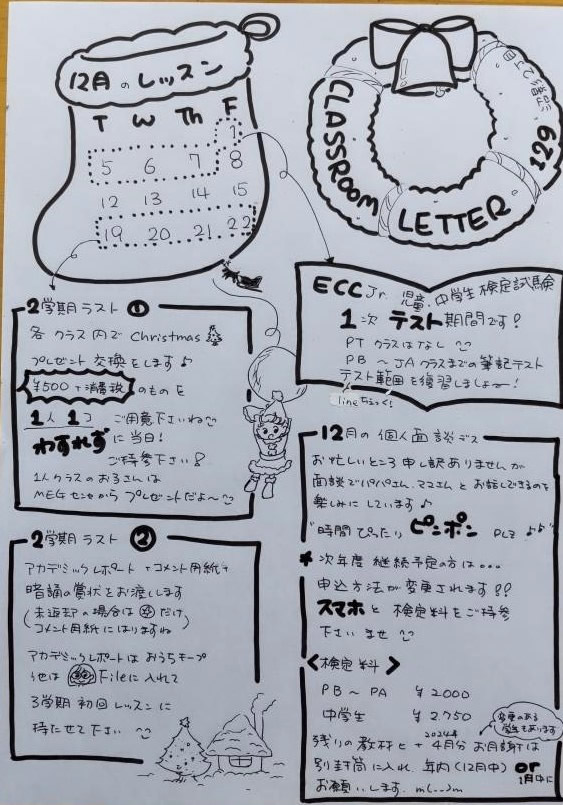 12月のレッスン
T W Th F
1
5 6 7 8
12 13 14 15
19 20 21 22
CLASSROOM LETTER 129
ECC Jr. 児童、中学生検定試験
1次 テスト期間です!
PT クラスはなし
PB 〜 JAクラスまでの筆記テスト
テスト範囲を復習しましょー!
lineちぇっく!
2学期ラスト ①
各クラス内で Christmas
プレゼント交換をします♪
¥500+消費税 のものを
1人1コ ご用意下さいね
わすれずに当日!
ご持参下さい!
1人クラスのお子さんは
MEGセンセからプレゼントだよ〜
2学期ラスト ②
アカデミックレポート+コメント用紙+
暗誦の賞状をお渡しします
(未返却の場合は だけ
コメント用紙にはりますね
アカデミックレポートはおうちキープ
他は Fileに入れて
3学期初回レッスンに
持たせて下さい
12月の個人面談デス
お忙しいところ申し訳ありませんが
面談でパパさん、ママさんとお話しできるのを
楽しみにしています♪
"時間ぴったり ピンポン PLZ ♪♪"
* 次年度継続予定の方は...
申込方法が変更されます!?
スマホと検定料をご持参
下さいませ
<検定料>
PB〜PA ¥2000
中学生 ¥2750
変更のある学年もあります
残りの教材ヒ+2024年4月分お月謝は
別封筒に入れ、年内(12月中) or 1月中に
お願いします。m(..)m